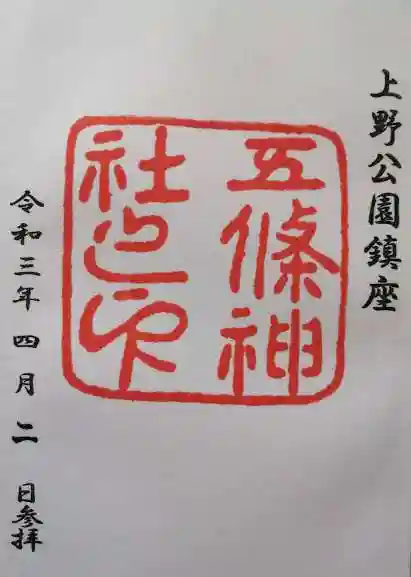 上野公園鎮座
五條神
社之印
令和三年四月二日参拝